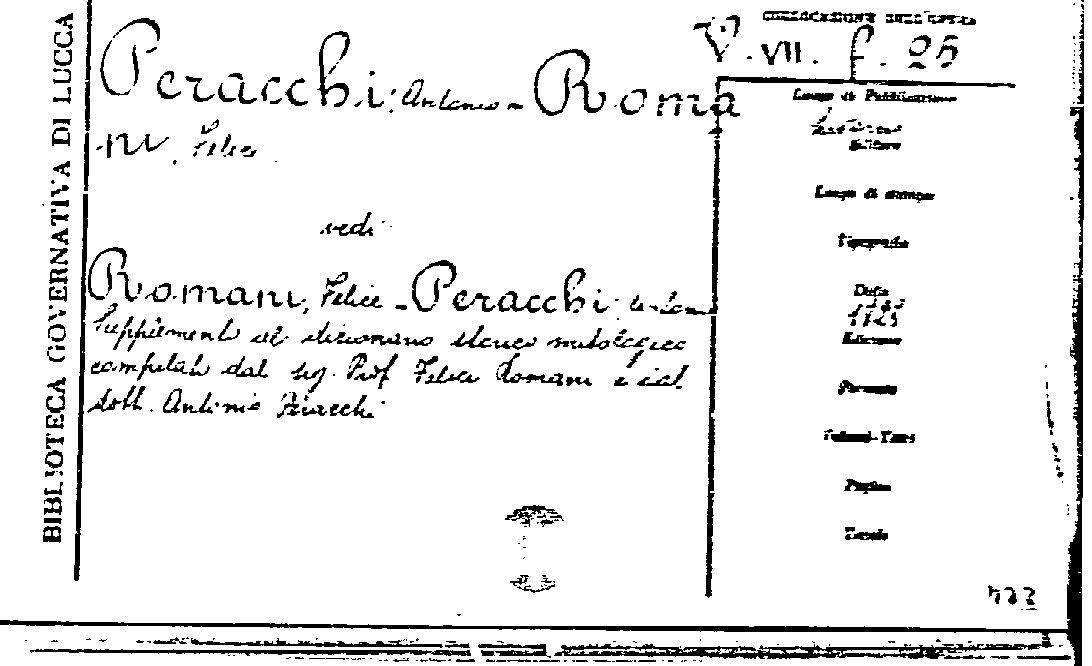 BIBLIOTECA GOVERNATIVA DI LUCCA
Peracchi, Antonio - Roma
-ni, Felice
vedi
Romani, Felice - Peracchi Antonio
Supplementi al dizionario storico mitologico
compilati dal sig. Prof. Felice Romani e dal
dott. Antonio Peracchi
COLLOCAZIONE DELL'OPERA
V. VII. f. 25
Luogo di Pubblicazione
Editore
Luogo di stampa
Tipografia
Data
Edizione
Formato
Volumi-Tomi
Pagine
Tavole